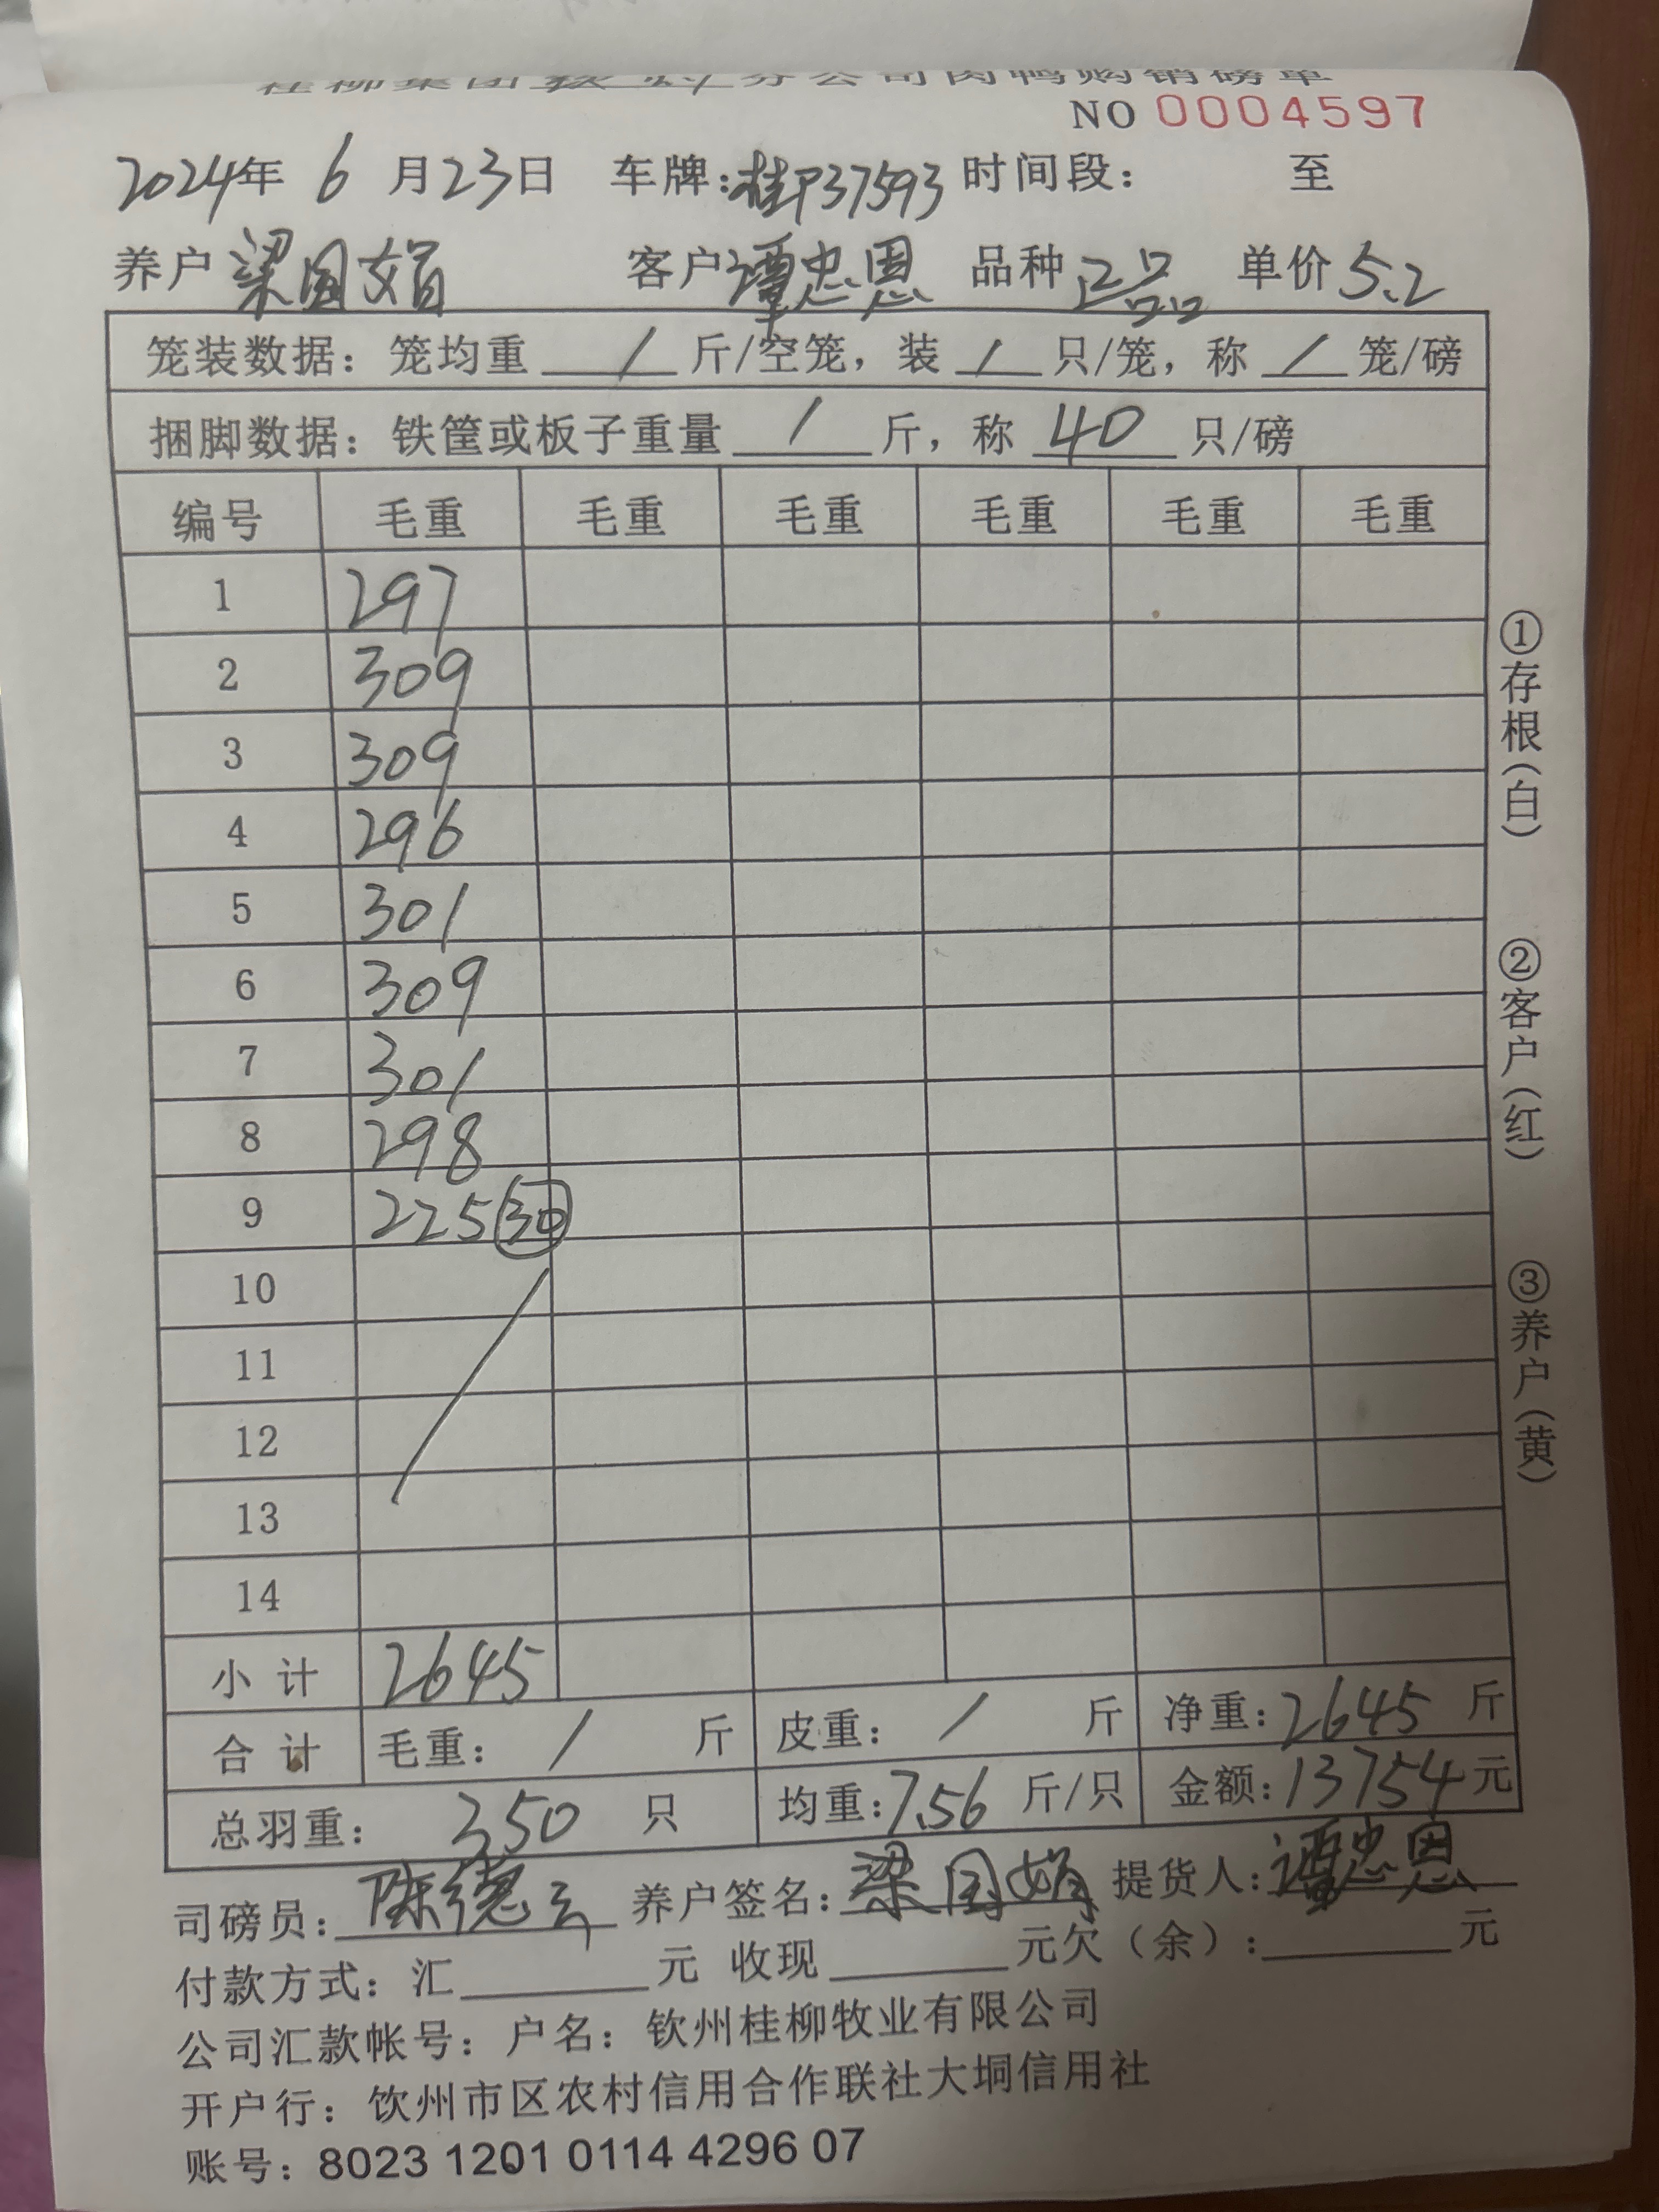 桂柳集团钦州分公司肉鸭购销磅单
NO 0004597
2024年 6 月23日 车牌:桂P37593 时间段: 至
养户 梁国娟 客户 谭忠恩 品种 正品 单价 5.2
笼装数据: 笼均重 / 斤/空笼, 装 / 只/笼, 称 / 笼/磅
捆脚数据: 铁筐或板子重量 / 斤, 称 40 只/磅
编号 毛重 毛重 毛重 毛重 毛重 毛重
1 297
2 309
3 309
4 296
5 301
6 309
7 301
8 298
9 225 30
10
11
12
13
14
小 计 2645
合 计 毛重: / 斤 皮重: / 斤 净重: 2645 斤
总羽重: 350 只 均重: 7.56 斤/只 金额: 13754 元
司磅员: 陈德云 养户签名: 梁国娟 提货人: 谭忠恩
付款方式: 汇______元 收现______元欠(余):______元
公司汇款帐号: 户名: 钦州桂柳牧业有限公司
开户行: 钦州市区农村信用合作联社大垌信用社
账号: 8023 1201 0114 4296 07
①存根(白) ②客户(红) ③养户(黄)